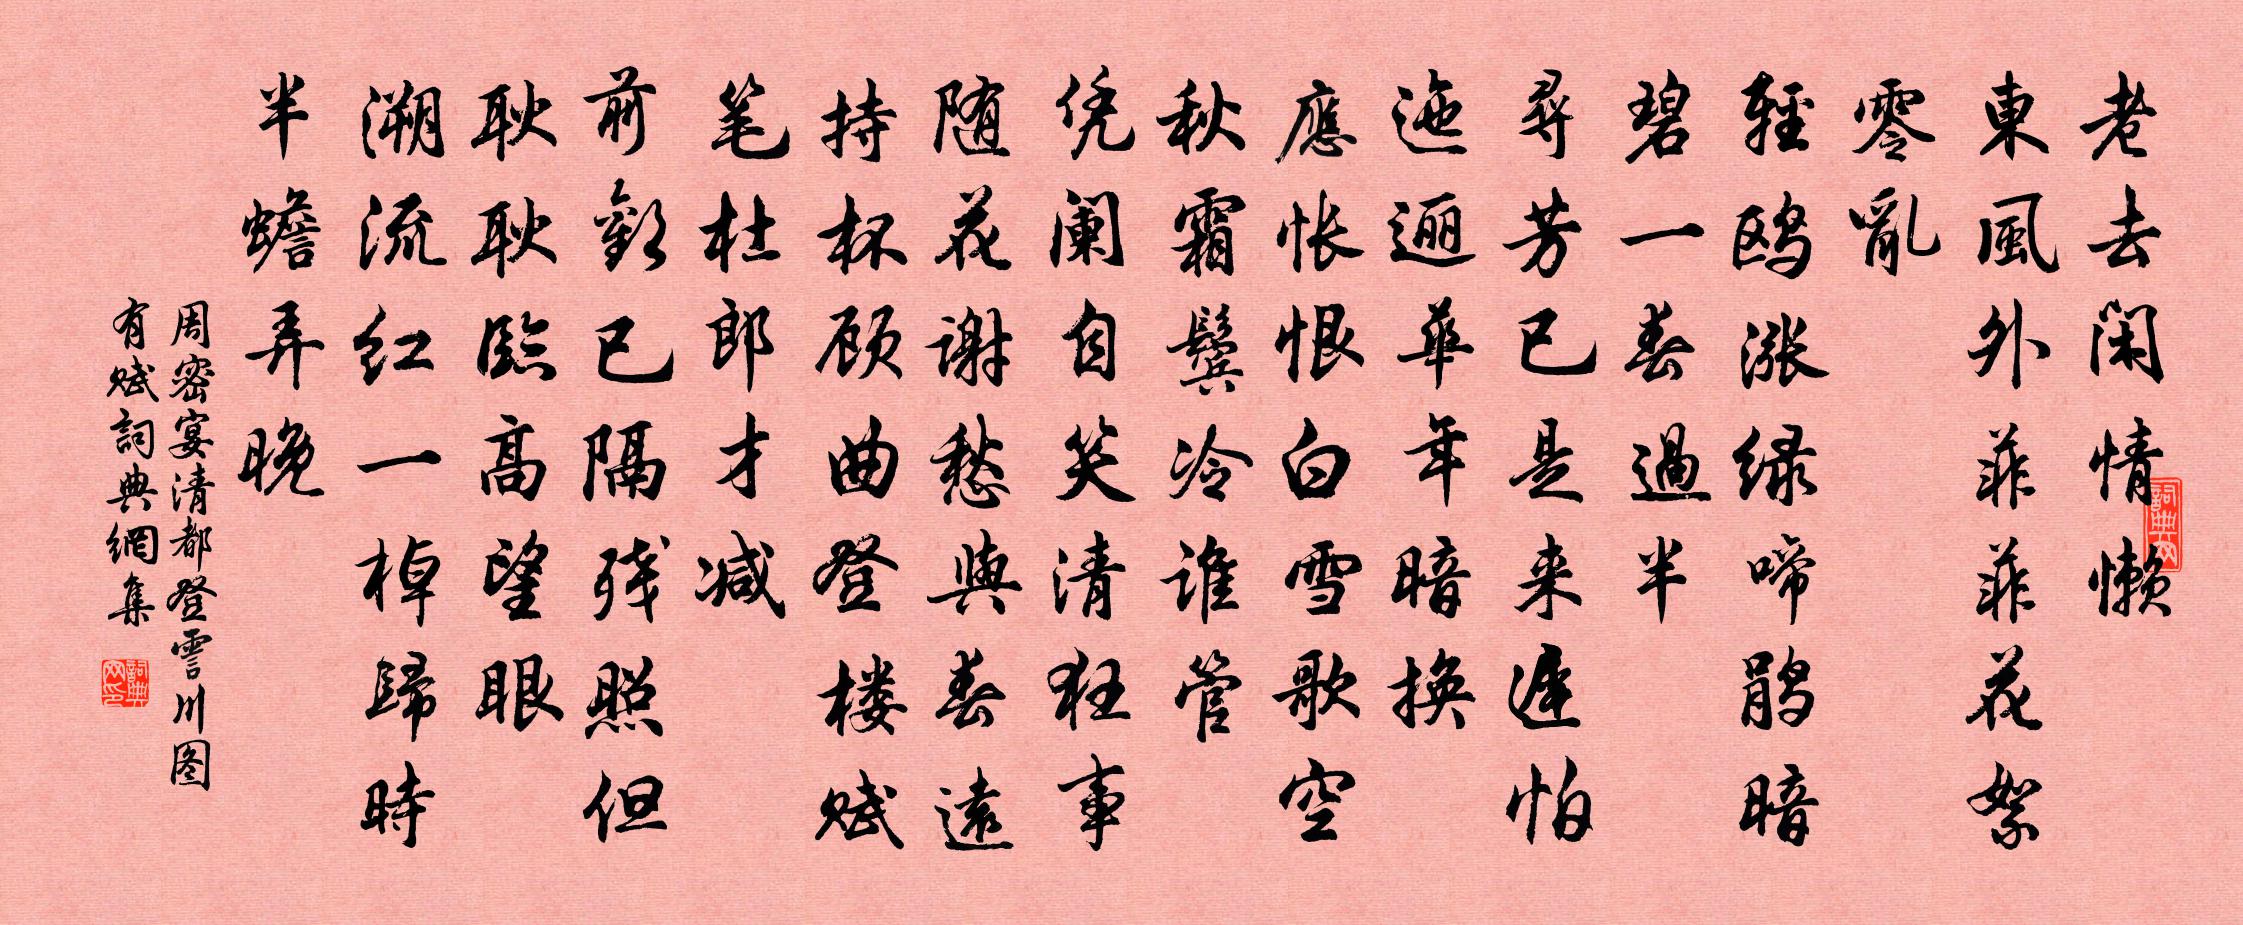 老去闲情懒
東風外菲菲花絮
零亂
輕鸥漲绿啼鹃暗
碧一春過半
尋芳已是来遲怕
迤逦華年暗換
應怅恨白雪歌空
秋霜鬢冷谁管
凭阑自笑清狂事
随花谢愁與春遠
持杯顾曲登楼赋
笔杜郎才减
前歡已隔残照但
耿耿臨高望眼
溯流红一棹歸時
半蟾弄晚
周密宴清都登霅川图
有赋詞典網集
詞典网
詞典网印